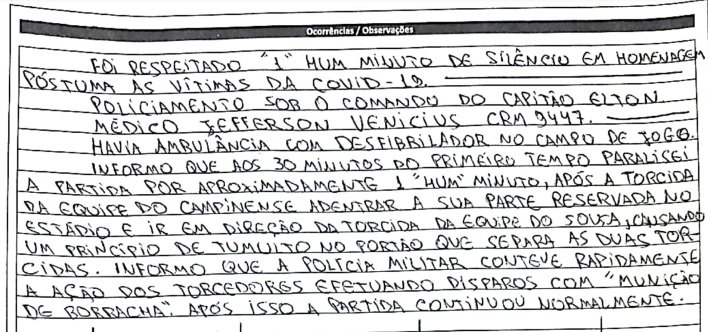 Ocorrências / Observações
FOI RESPEITADO "1" HUM MINUTO DE SILÊNCIO EM HOMENAGEM
PÓSTUMA AS VÍTIMAS DA COVID-19.
POLICIAMENTO SOB O COMANDO DO CAPITÃO ELTON
MÉDICO JEFFERSON VENICIUS CRM 9447.
HAVIA AMBULÂNCIA COM DESFIBRILADOR NO CAMPO DE JOGO.
INFORMO QUE AOS 30 MINUTOS DO PRIMEIRO TEMPO PARALISEI
A PARTIDA POR APROXIMADAMENTE 1 "HUM" MINUTO, APÓS A TORCIDA
DA EQUIPE DO CAMPINENSE ADENTRAR A SUA PARTE RESERVADA NO
ESTÁDIO E IR EM DIREÇÃO DA TORCIDA DA EQUIPE DO SOUSA, CAUSANDO
UM PRINCÍPIO DE TUMULTO NO PORTÃO QUE SEPARA AS DUAS TOR-
CIDAS. INFORMO QUE A POLÍCIA MILITAR CONTEVE RAPIDAMENTE
A AÇÃO DOS TORCEDORES EFETUANDO DISPAROS COM "MUNIÇÃO
DE BORRACHA". APÓS ISSO A PARTIDA CONTINUOU NORMALMENTE.